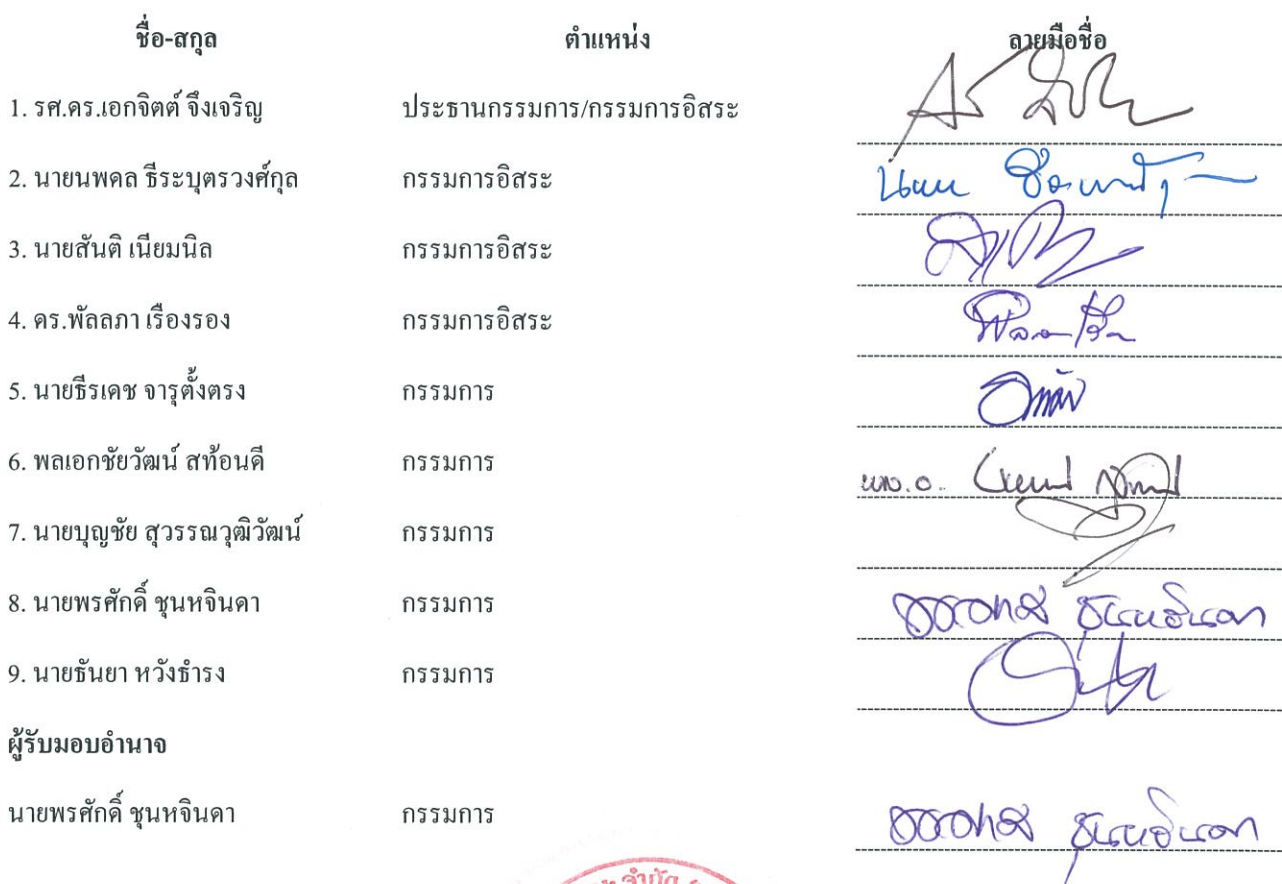 ชื่อ-สกุล ตำแหน่ง ลายมือชื่อ
1. รศ.ดร.เอกจิตต์ จึงเจริญ ประธานกรรมการ/กรรมการอิสระ
2. นายนพดล ธีระบุตรวงศ์กุล กรรมการอิสระ
3. นายสันติ เนียมนิล กรรมการอิสระ
4. ดร.พัลลภา เรืองรอง กรรมการอิสระ
5. นายธีรเดช จารุตั้งตรง กรรมการ
6. พลเอกชัยวัฒน์ สท้อนดี กรรมการ
7. นายบุญชัย สุวรรณวุฒิวัฒน์ กรรมการ
8. นายพรศักดิ์ ชุนหจินดา กรรมการ
9. นายธันยา หวังธำรง กรรมการ
ผู้รับมอบอำนาจ
นายพรศักดิ์ ชุนหจินดา กรรมการ
จำกัด